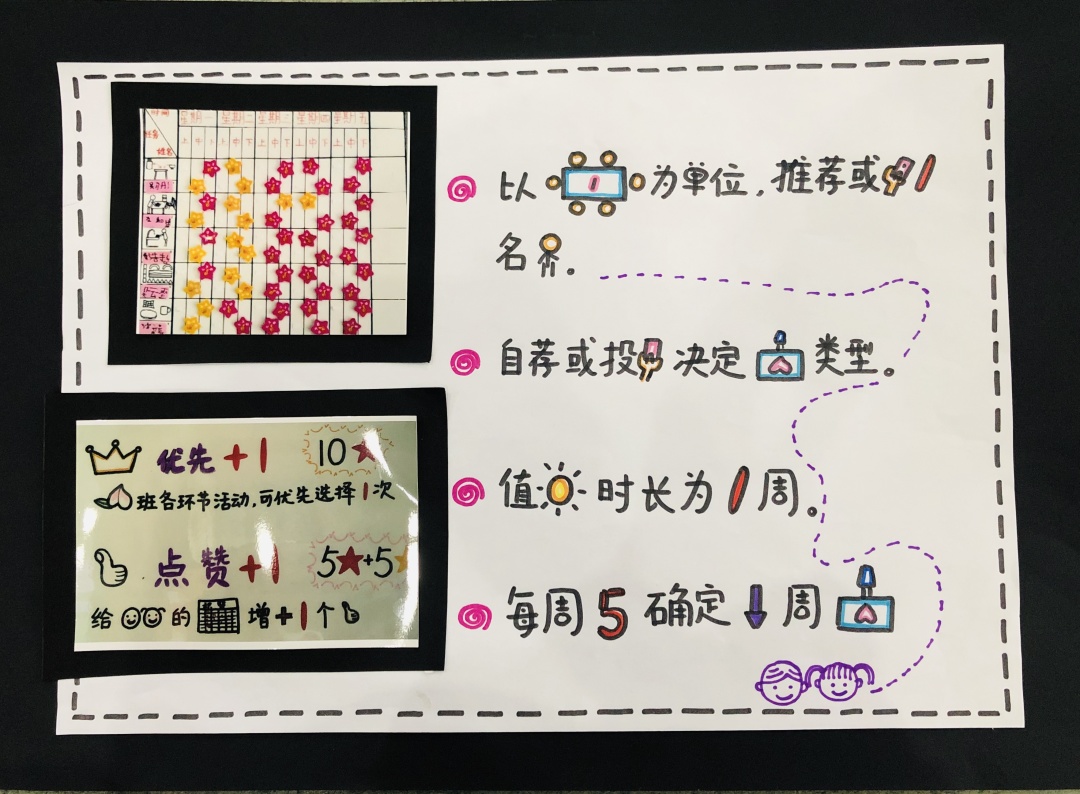 时间
任务
姓名
星期一 星期二 星期三 星期四 星期五
上 中 下 上 中 下 上 中 下 上 中 下 上 中 下
优先+1 10
班各环节活动,可优先选择1次
点赞+1 5+5
给的增+1个
以1为单位,推荐或1
名。
自荐或投决定类型。
值时长为1周。
每周5确定周